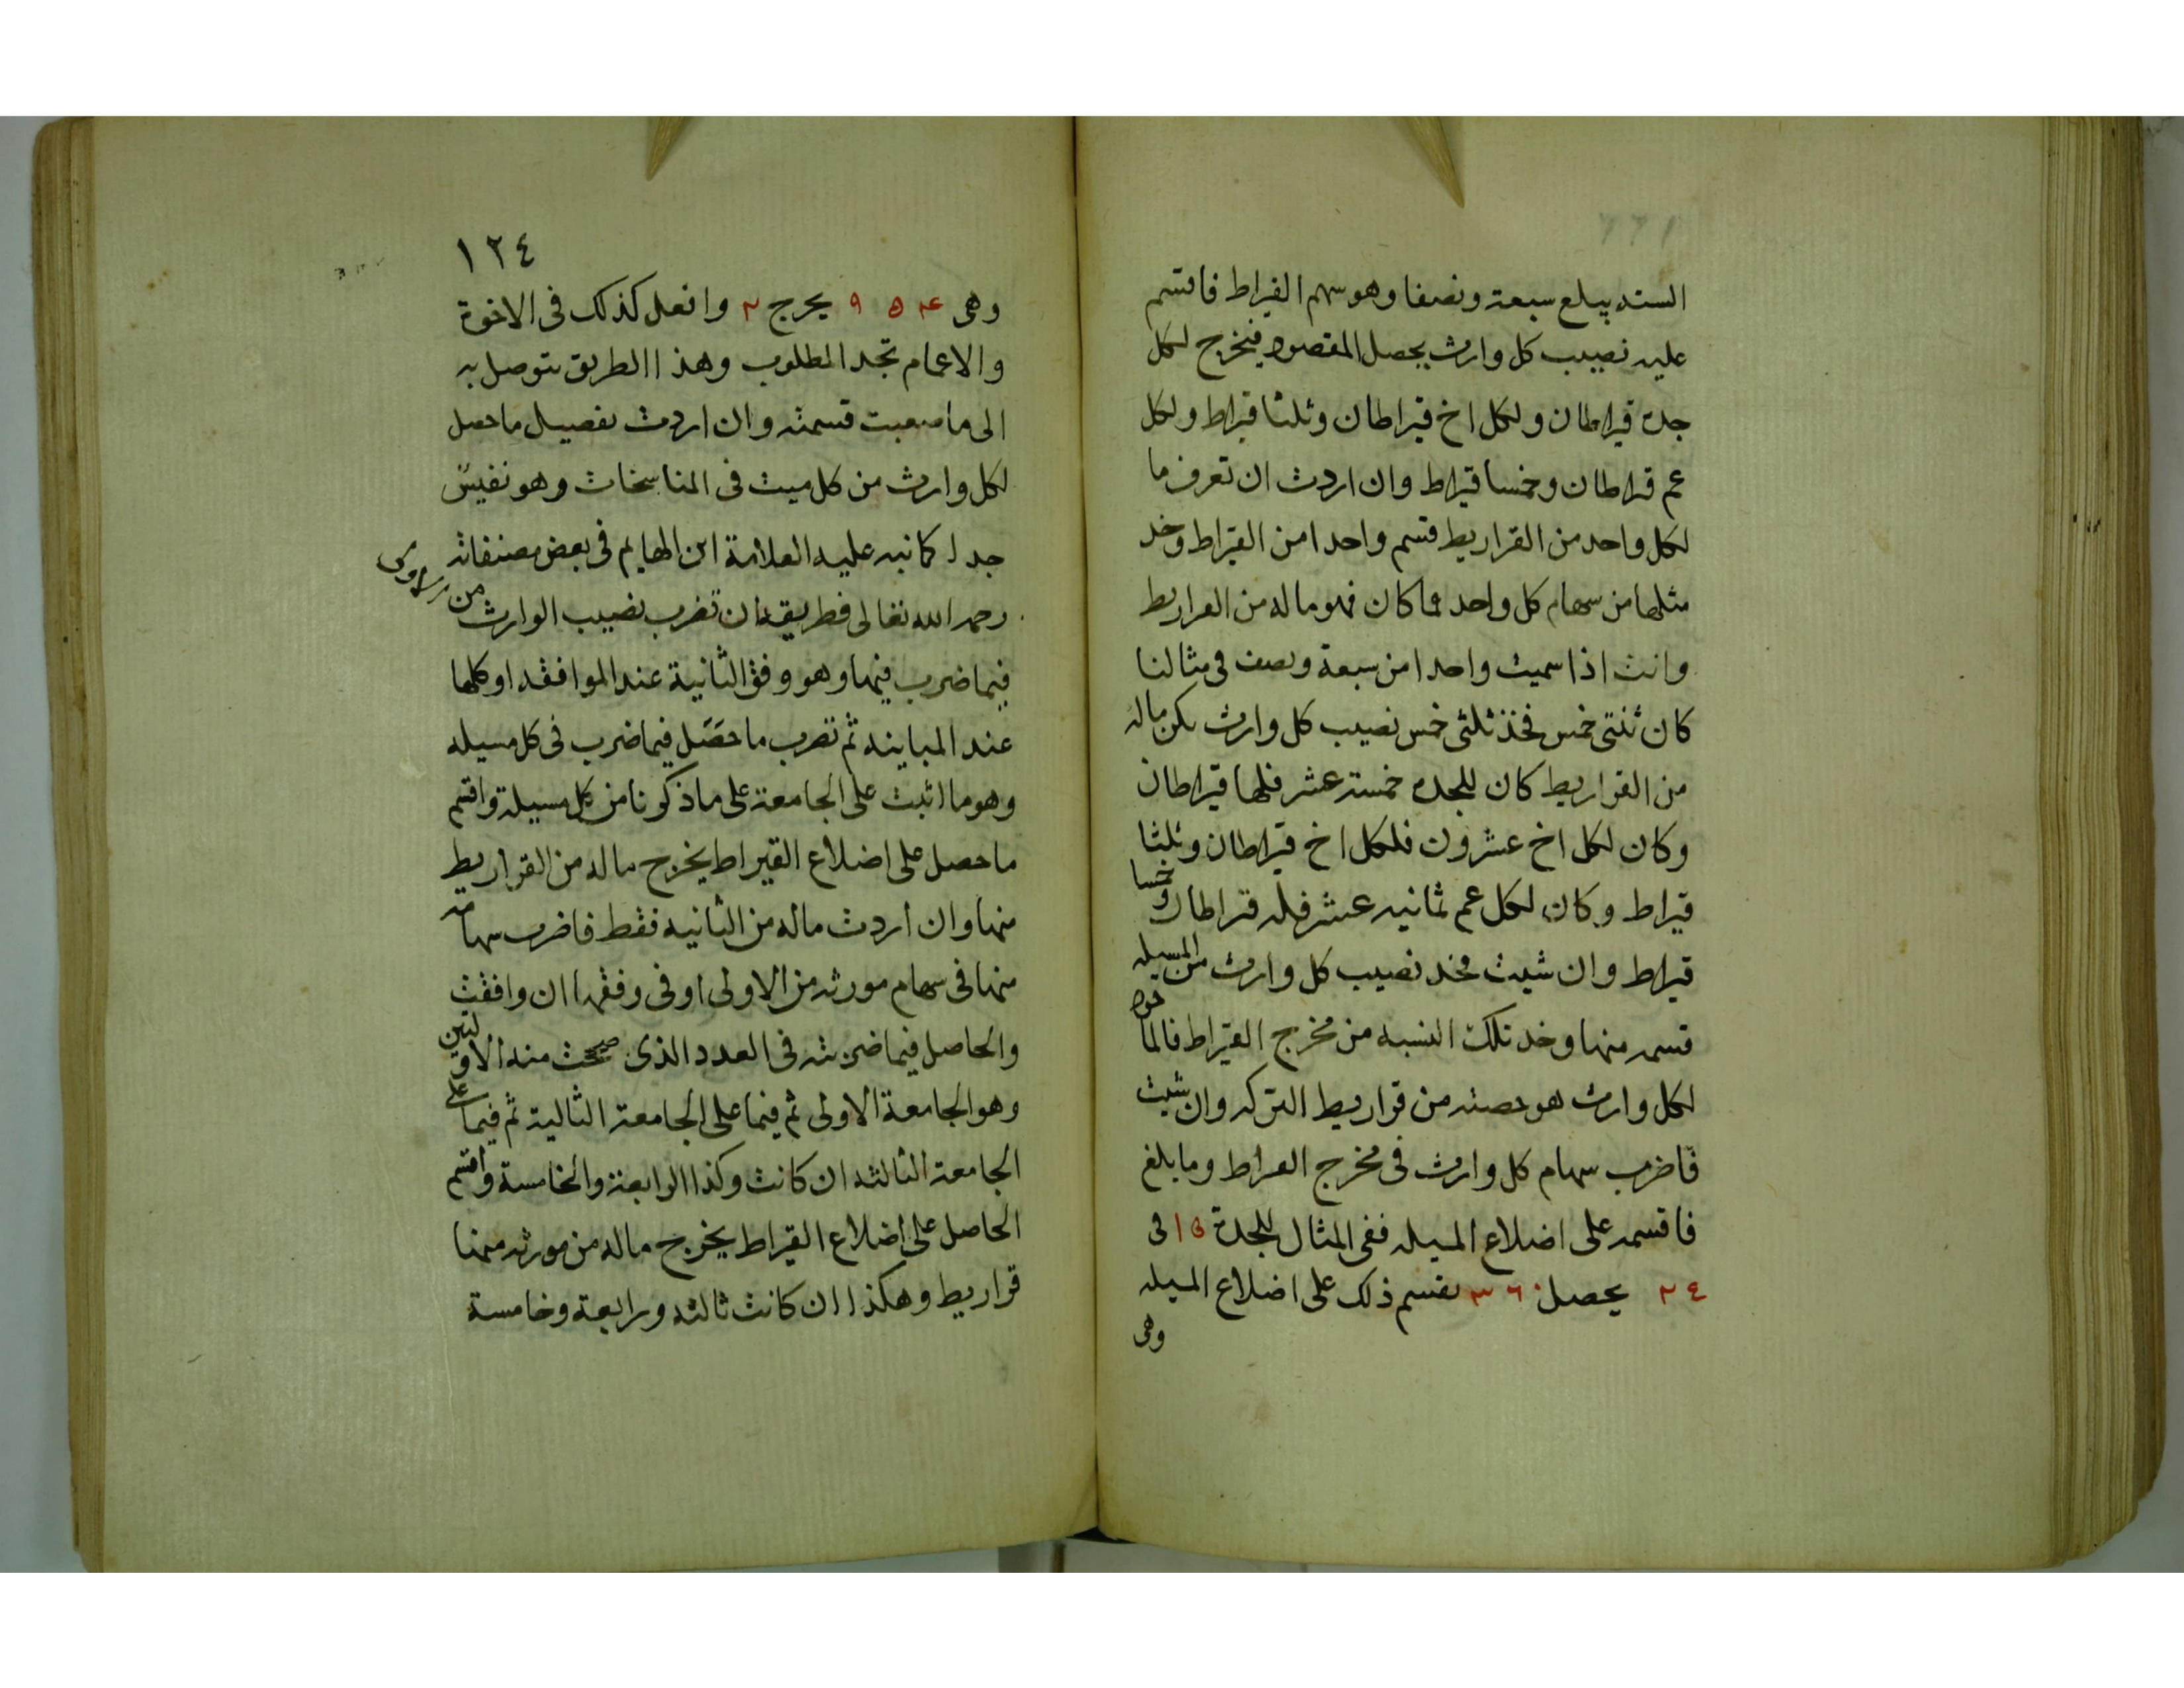 الستة يبلع سبعة ونصفا وهو سهم القيراط فاقسم
عليه نصيب كل وارث يحصل المقصود فيخرج لكل
جدة قيراطان ولكل اخ قيراطان وثلثا قيراط ولكل
عم قراطان وخمسا قيراط وان اردت ان تعرف ما
لكل واحد من القراريط فسم واحدا من القيراط وخد
مثلها من سهام كل واحد فما كان فهو ماله من القراريط
وانت اذا سميت واحدا من سبعة ونصف فى مثالنا
كان ثلثى خمس فخذ ثلثى خمس نصيب كل وارث يكن ماله
من القراريط كان للجده خمسة عشر فلها قيراطان
وكان لكل اخ عشرون فلكل اخ قيراطان وثلثا
قيراط وكان لكل عم ثمانيه عشر فله قراطان وخمسا
قيراط وان شيت فخد نصيب كل وارث من المسيله
فسمه منها وخد تلك النسبه من مخرج القيراط فالماخود
لكل وارث هو حصته من قراريط التركه وان شيت
فاضرب سهام كل وارث فى مخرج القيراط وما بلغ
فاقسمه على اضلاع المسيله ففى المثال للجدة ١٥ فى
٢٤ يحصل ٣٦٠ نقسم ذلك على اضلاع المسيله
وهى
١٢٤
وهى ٤ ٥ ٩ يخرج ٢ وافعل كذلك فى الاخوة
والاعمام تجد المطلوب وهذا الطريق يتوصل به
الى ما صعبت قسمته وان اردت تفصيل ما حصل
لكل وارث من كل ميت فى المناسخات وهو نفيس
جدا كما نبه عليه العلامة ابن الهايم فى بعض مصنفاته
رحمه الله تعالى فطريقه ان تضرب نصيب الوارث من
فيما ضرب فيها وهو وفق الثانية عند الموافقه او كلها
عند المباينه ثم تضرب ما حصل فيما ضرب فى كل مسيله
وهو ما اثبت على الجامعة على ما ذكرنا من كل مسيلة واقسم
ما حصل على اضلاع القيراط يخرج ماله من القراريط
منها وان اردت ماله من الثانيه فقط فاضرب سهامه
منها فى سهام مورثه من الاولى او فى وفقها ان وافقت
والحاصل فيما ضربته فى العدد الذى صحت منه الاوليين
وهو الجامعة الاولى ثم فيما على الجامعة الثالية ثم فيما على
الجامعة الثالثه ان كانت وكذا الرابعة والخامسة واقسم
الحاصل على اضلاع القيراط يخرج ماله من مورثه منها
قراريط وهكذا ان كانت ثالثه ورابعة وخامسة